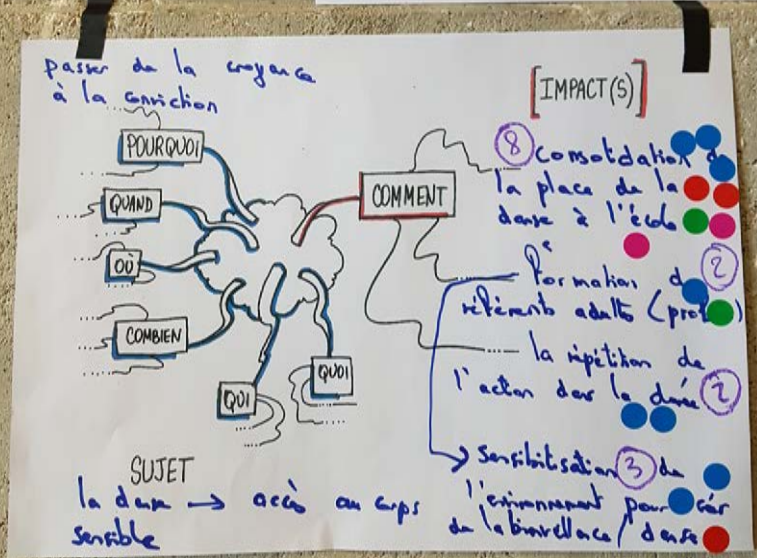 passer de la croyance
à la conviction
POURQUOI
QUAND
OÙ
COMBIEN
QUI
QUOI
COMMENT
SUJET
la danse → accès au corps
sensible
[IMPACT(S)]
8 consolidation d
la place de la
danse à l'école
Formation d 2
référents adultes (prof )
la répétition de
l'action dans la durée 2
Sensibilisation 3 de
l'environnement pour créer
de la bienveillance / danse